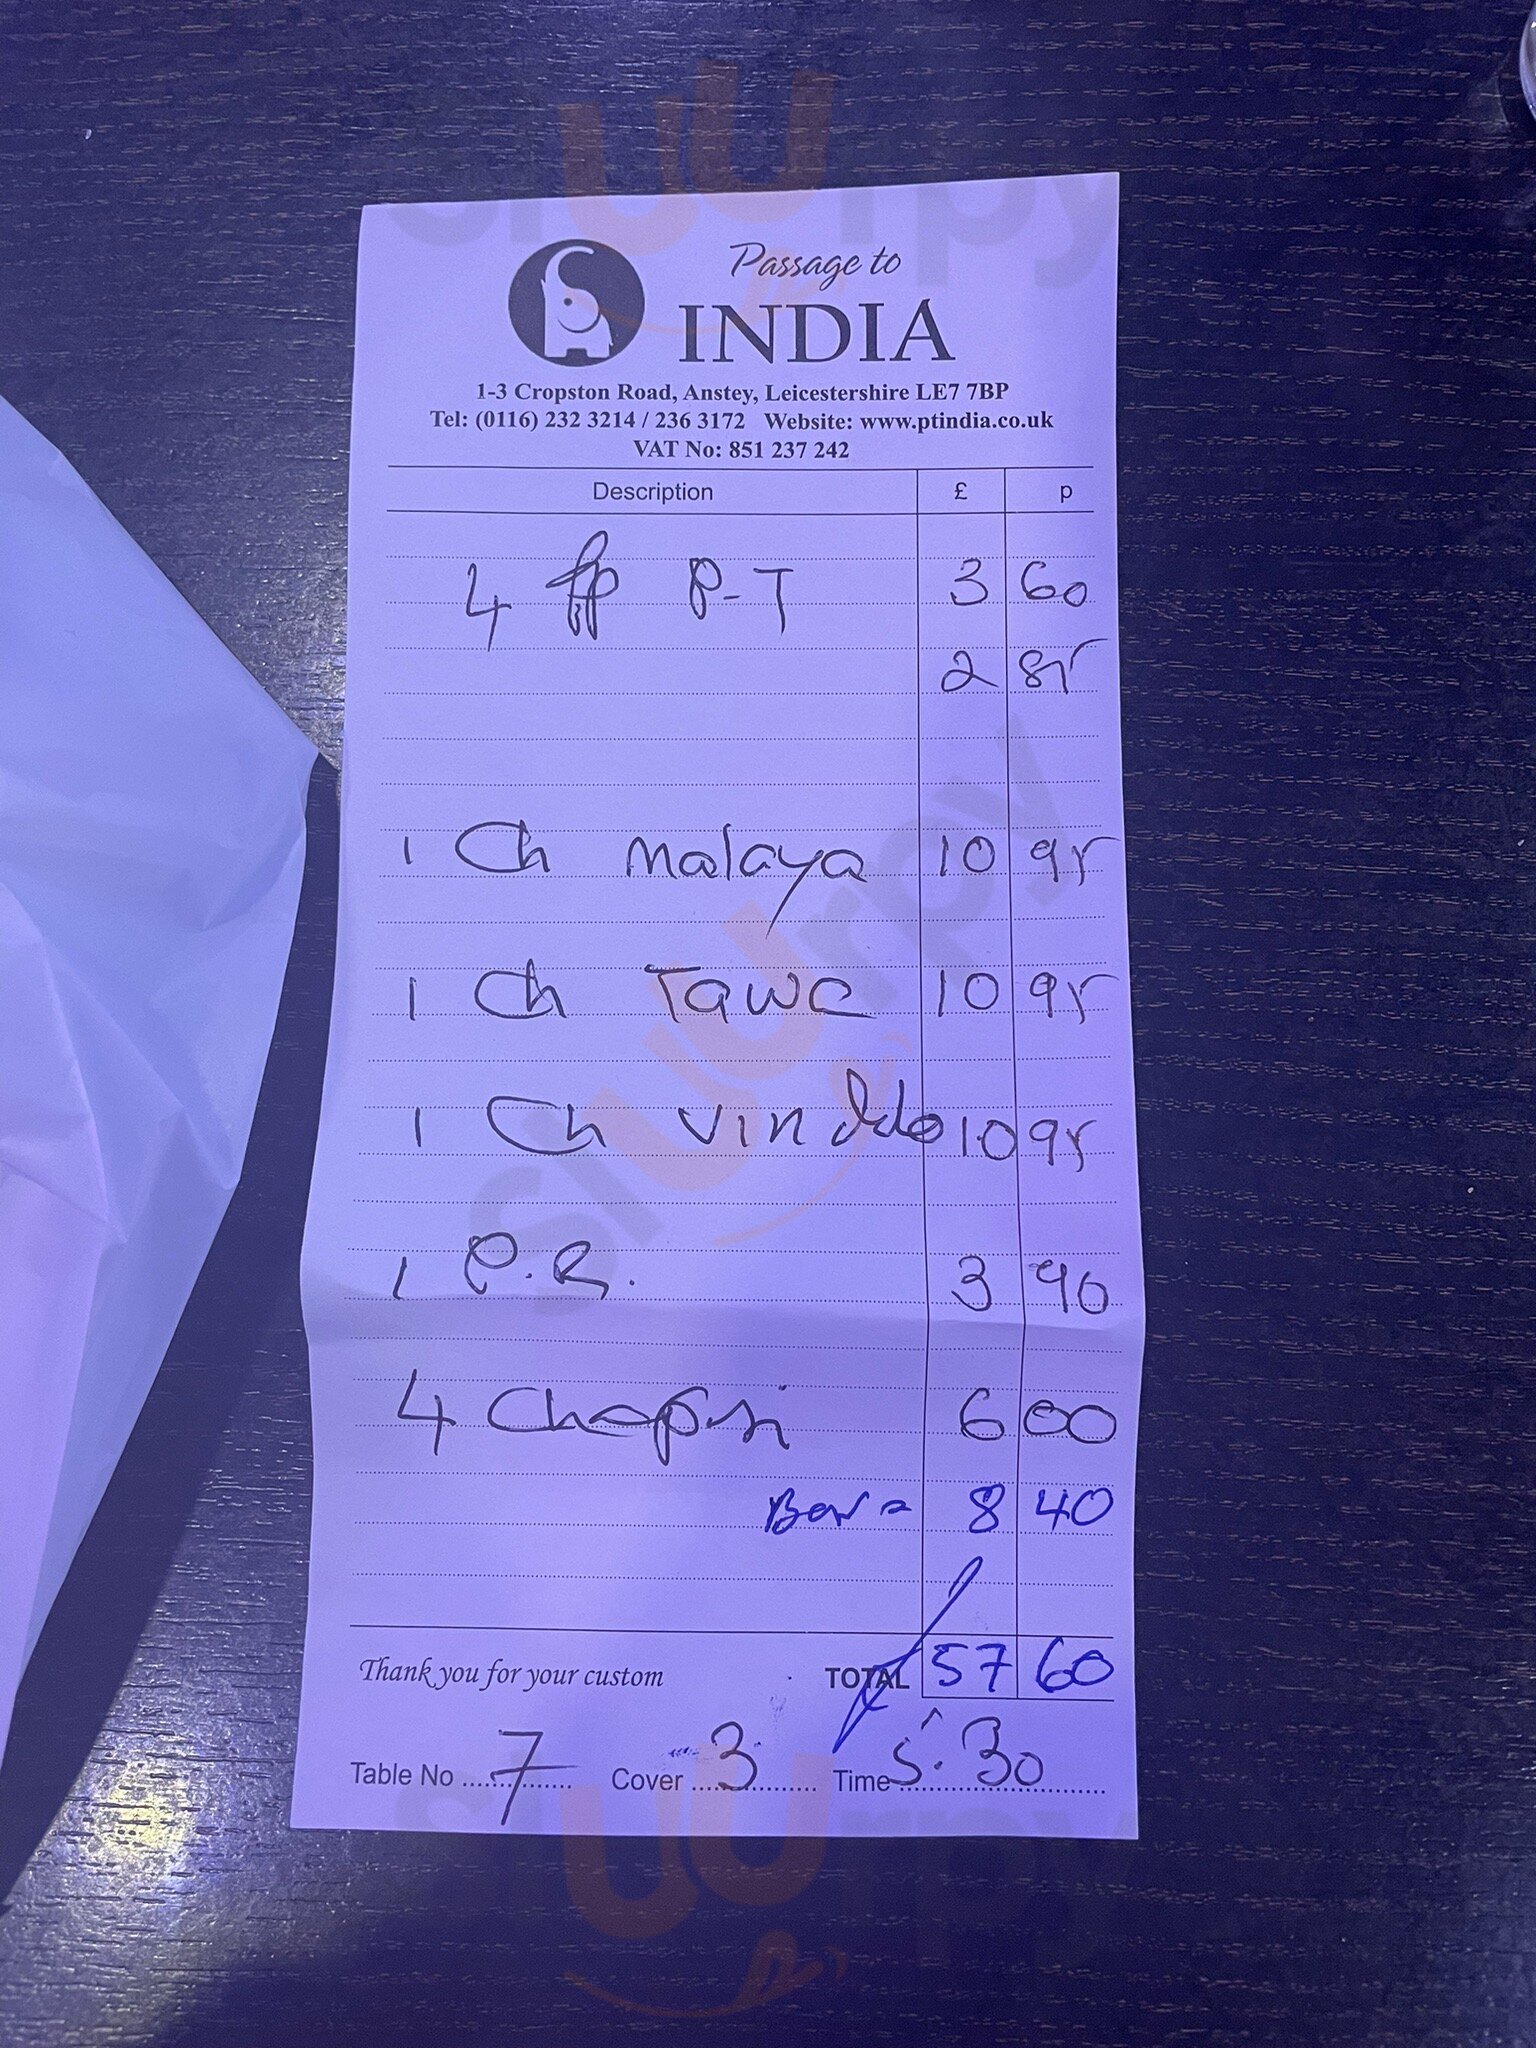 Passage to
INDIA
1-3 Cropston Road, Anstey, Leicestershire LE7 7BP
Tel: (0116) 232 3214 / 236 3172 Website: www.ptindia.co.uk
VAT No: 851 237 242
Description £ p
4 PP P-T 3 60
2 85
1 Ch Malaya 10 95
1 Ch Tawa 10 95
1 Ch vindalo 10 95
1 P.R. 3 90
4 6 00
= 8 40
Thank you for your custom TOTAL 57 60
Table No 7 Cover 3 Time 5:30
sluurpy
sluurpy
sluurpy